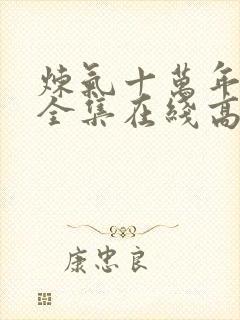 煉氣十萬年
全集在綫高
康忠良